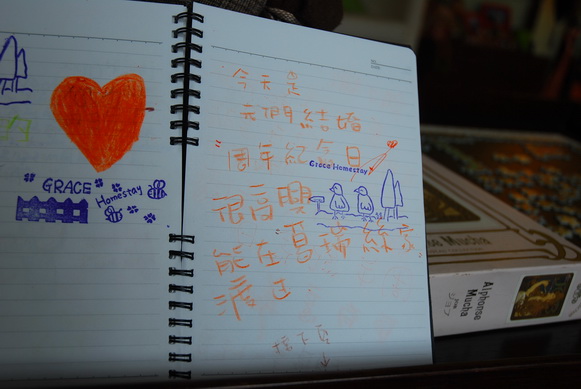 GRACE
Homestay
今天是
我們結婚
"周年紀念日
Grace Homestay
很高興
能在"葛瑞絲家"
渡过.
Alphonse
Mucha